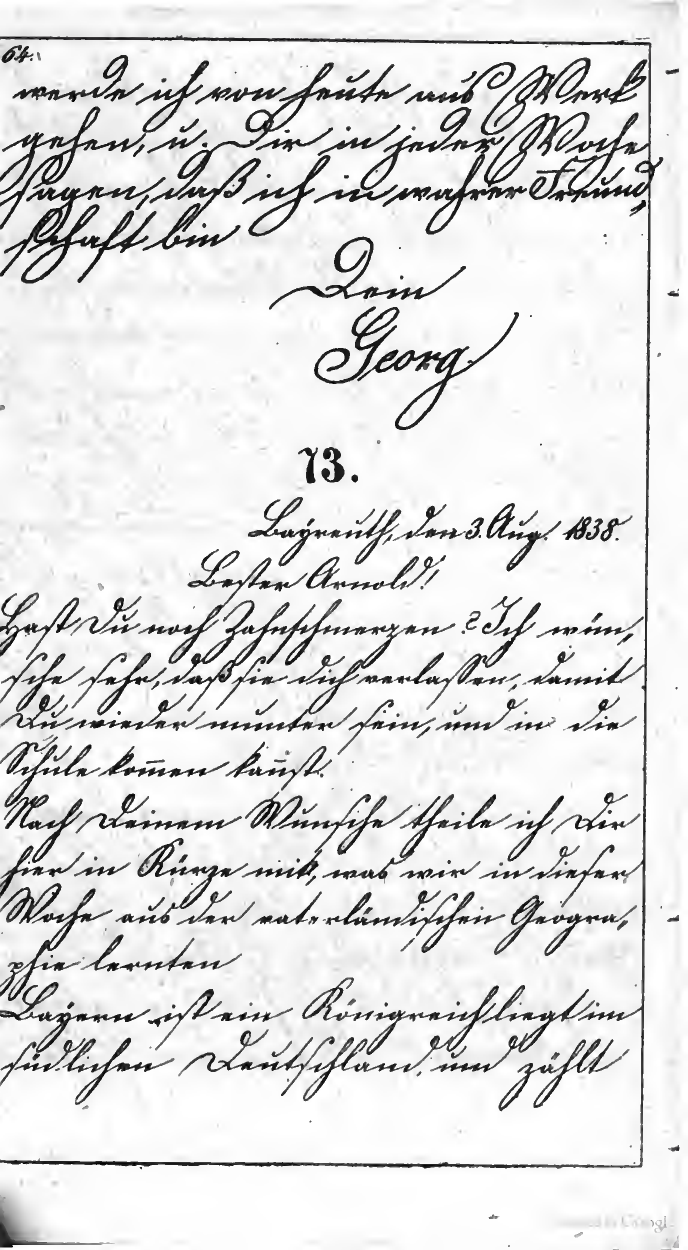 64.
werde ich von heute ans Werk
gehen, u. Dir in jeder Woche
sagen, daß ich in wahrer Freund,
schaft bin
Dein
Georg.
73.
Bayreuth, den 3. Aug. 1838.
Bester Arnold!
Hast Du noch Zahnschmerzen? Ich wün,
sche sehr, daß sie dich verlassen, damit
Du wieder munter sein, und in die
Schule kom̅en kan̅st.
Nach Deinem Wunsche theile ich Dir
hier in Kürze mit, was wir in dieser
Woche aus der vaterländischen Geogra,
phie lernten
Bayern ist ein Königreich liegt im
südlichen Deutschland, und zählt